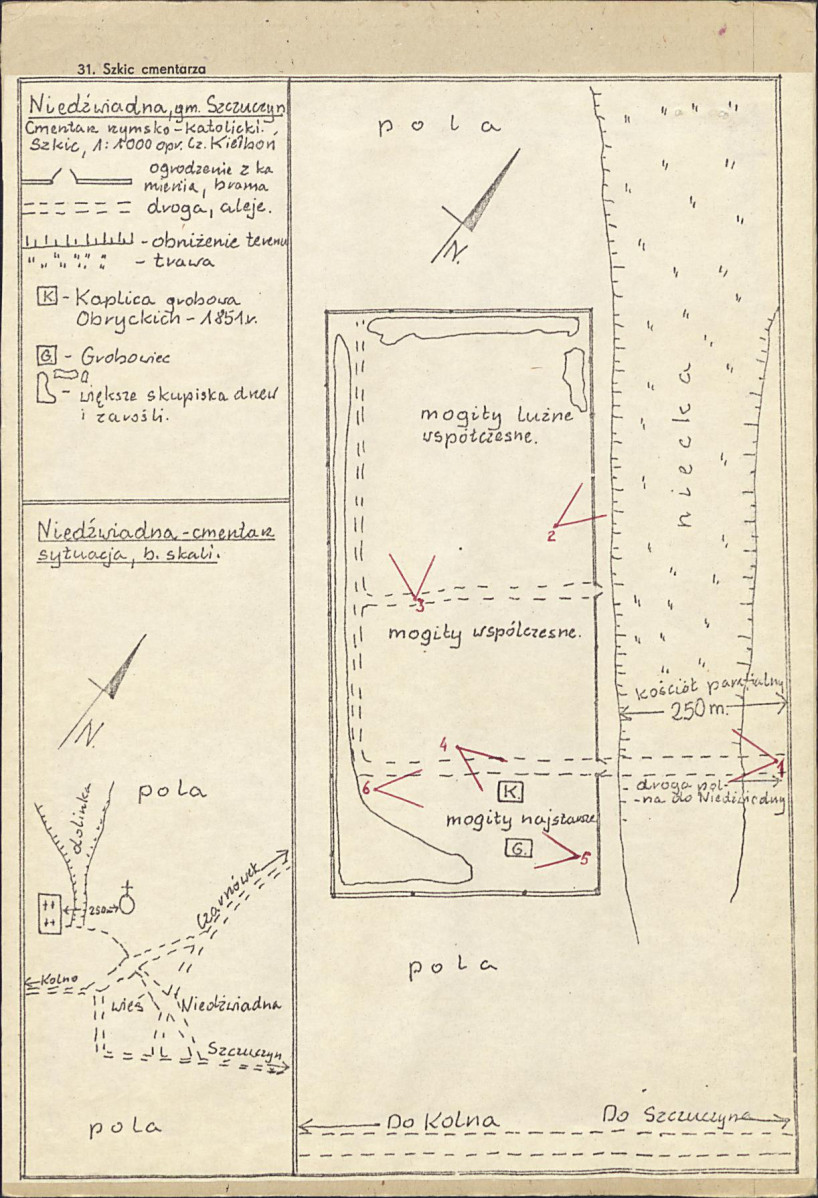 31. Szkic cmentarza
Niedźwiadna, gm. Szczuczyn
Cmentarz rzymsko-katolicki.
Szkic, 1:1000 opr. Cz. Kiełbon
ogrodzenie z ka
mienia, brama
droga, aleje.
- obniżenie terenu
- trawa
K - Kaplica grobowa
Obryckich - 1851 r.
G - Grobowiec
- większe skupiska drzew
i zarośli.
Niedźwiadna - cmentarz
sytuacja, b. skali.
N.
pola
dolinka
250m
Czarnówek
Kolno
wieś Niedźwiadna
Szczuczyn
pola
pola
N.
mogiły luźne
współczesne.
niecka
2
3
mogiły współczesne.
kościół parafialny
250 m.
4
1
droga pol-
-na do Niedźwiadny
6
K
mogiły najstarsze
G.
5
pola
Do Kolna
Do Szczuczyna